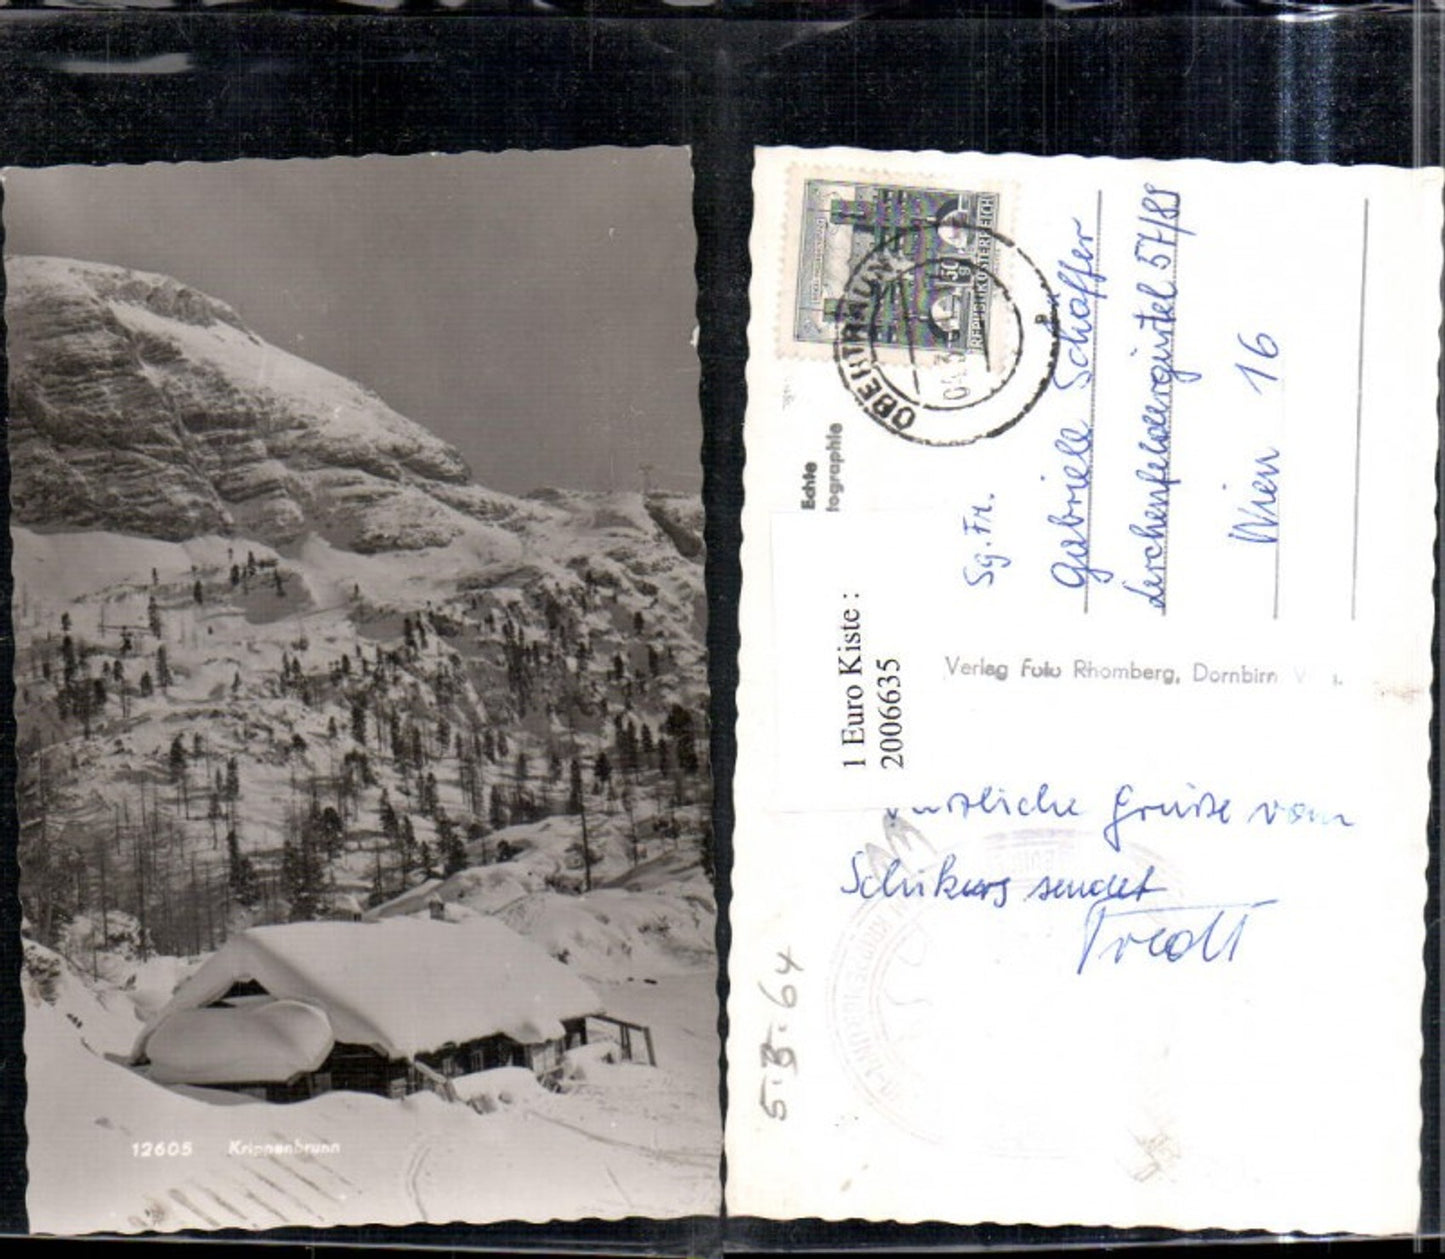 12605 Krippenbrunn
REPUBLIK ÖSTERREICH
50 g
OBERTRAUN
Echte
tographie
1 Euro Kiste :
2006635
Sg. Fr.
Gabriele Schaffer
Lerchenfeldergürtel 57/8
Wien 16
Verlag Foto Rhomberg, Dornbirn
Grüße vom
Schikurs sendet
5.3.64